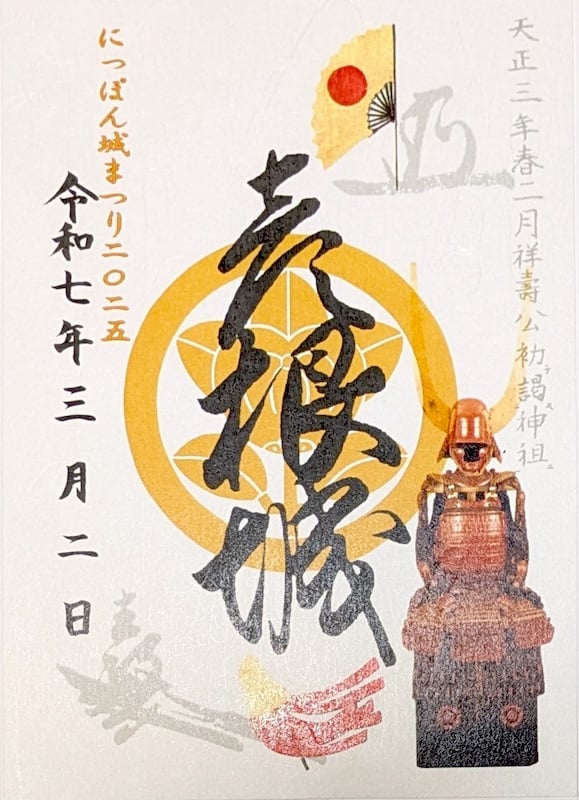 天正三年春二月祥壽公初謁神祖
テス ニ
彦根城
にっぽん城まつり二〇二五
令和七年三月二日